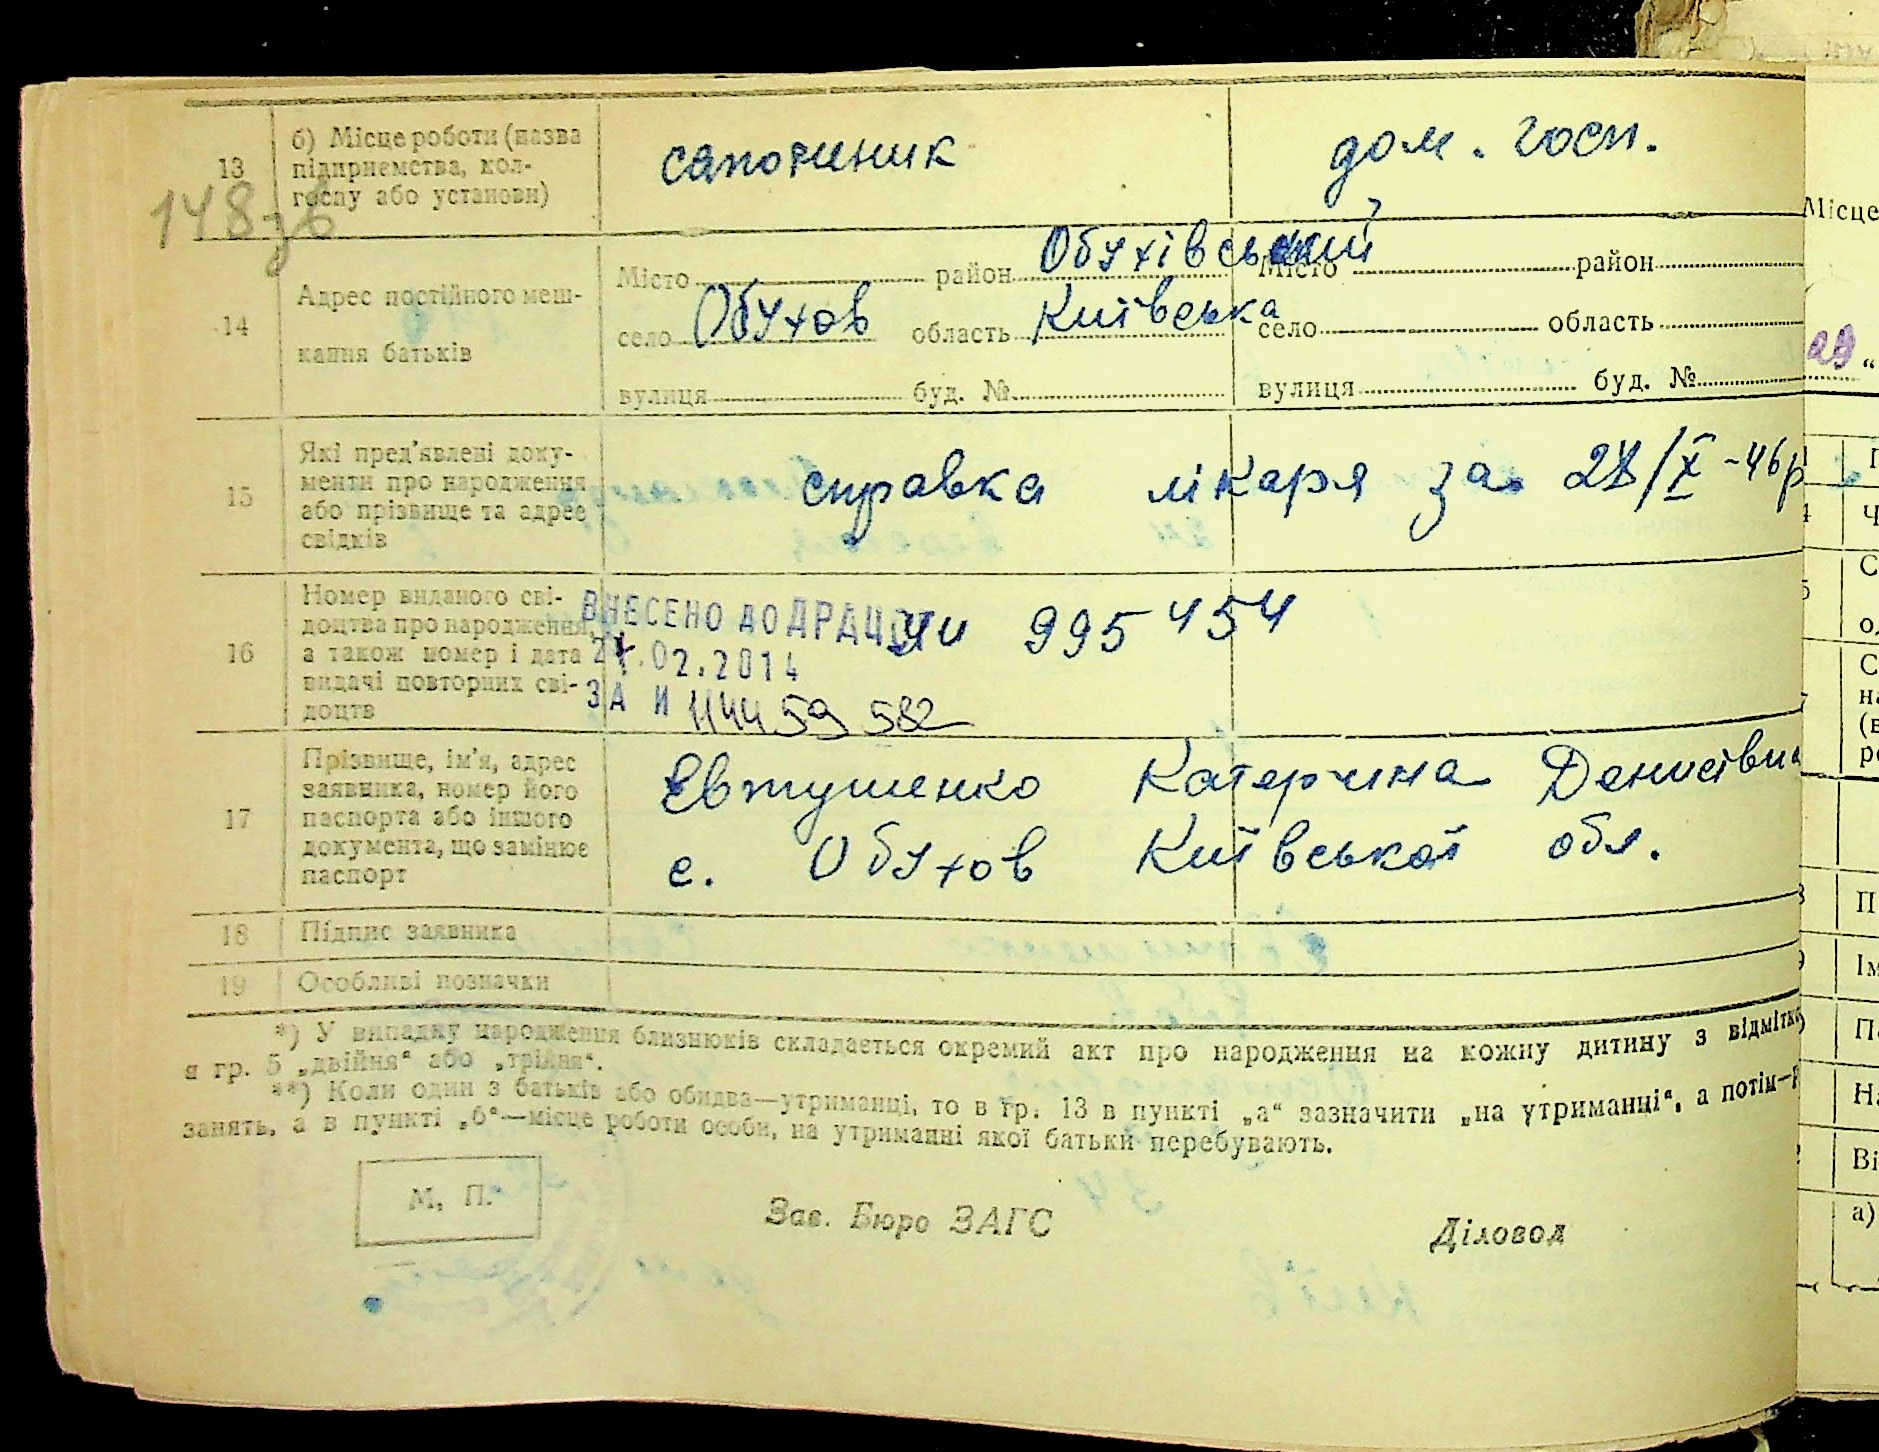 13
б) Місце роботи (назва
підприємства, кол-
госпу або установи)
сапочиник
дом. госп.
148зв
14
Адрес постійного меш-
кання батьків
Місто район Обухівський
село Обухов область Київська
вулиця буд. №
Місто район
село область
вулиця буд. №
15
Які пред'явлені доку-
менти про народження
або прізвище та адрес
свідків
справка лікаря за 28/X-46р
16
Номер виданого сві-
доцтва про народження,
а також номер і дата
видачі повторних сві-
доцтв
ВНЕСЕНО ДО ДРАЦС
.02.2014
ЗА И 114459582
995454
17
Прізвище, ім'я, адрес
заявника, номер його
паспорта або іншого
документа, що замінює
паспорт
Євтушенко Катерина Денисівна
с. Обухов Київської обл.
18
Підпис заявника
19
Особливі позначки
*) У випадку народження близнюків складається окремий акт про народження на кожну дитину з відмітко
я гр. 5 „двійня“ або „трійня“.
**) Коли один з батьків або обидва—утриманці, то в гр. 13 в пункті „а“ зазначити „на утриманні“, а потім—
занять, а в пункті „б“—місце роботи особи, на утриманні якої батьки перебувають.
М. П.
Зав. Бюро ЗАГС
Діловод
Місце
29 “